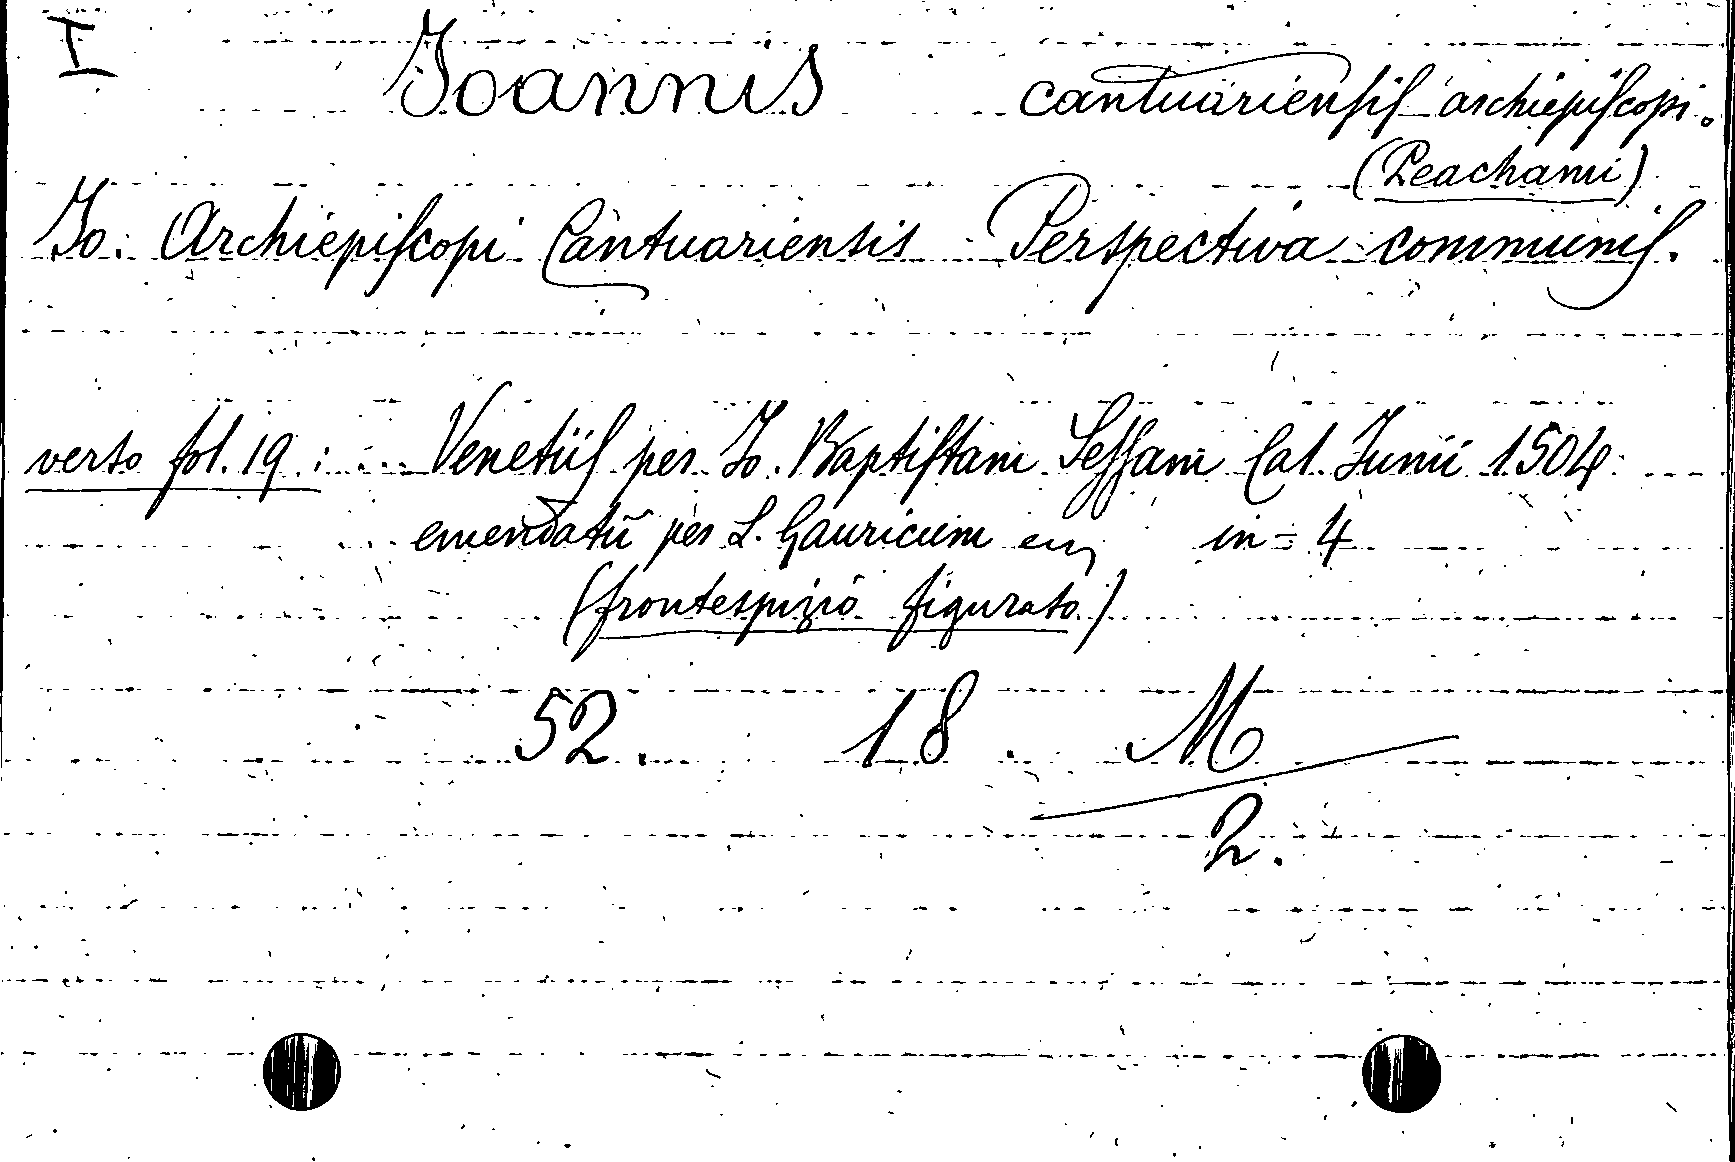 I Joannis cantuariensis archiepiscopi.
(Peachami)
Jo: Archiepiscopi Cantuariensis Perspectiva communis.
verso fol. 19 : Venetiis per Jo. Baptistam Sessam Cal. Junii 1504
emendatū per L. Gauricum in=4
(frontespizio figurato)
52. 18. M
2.